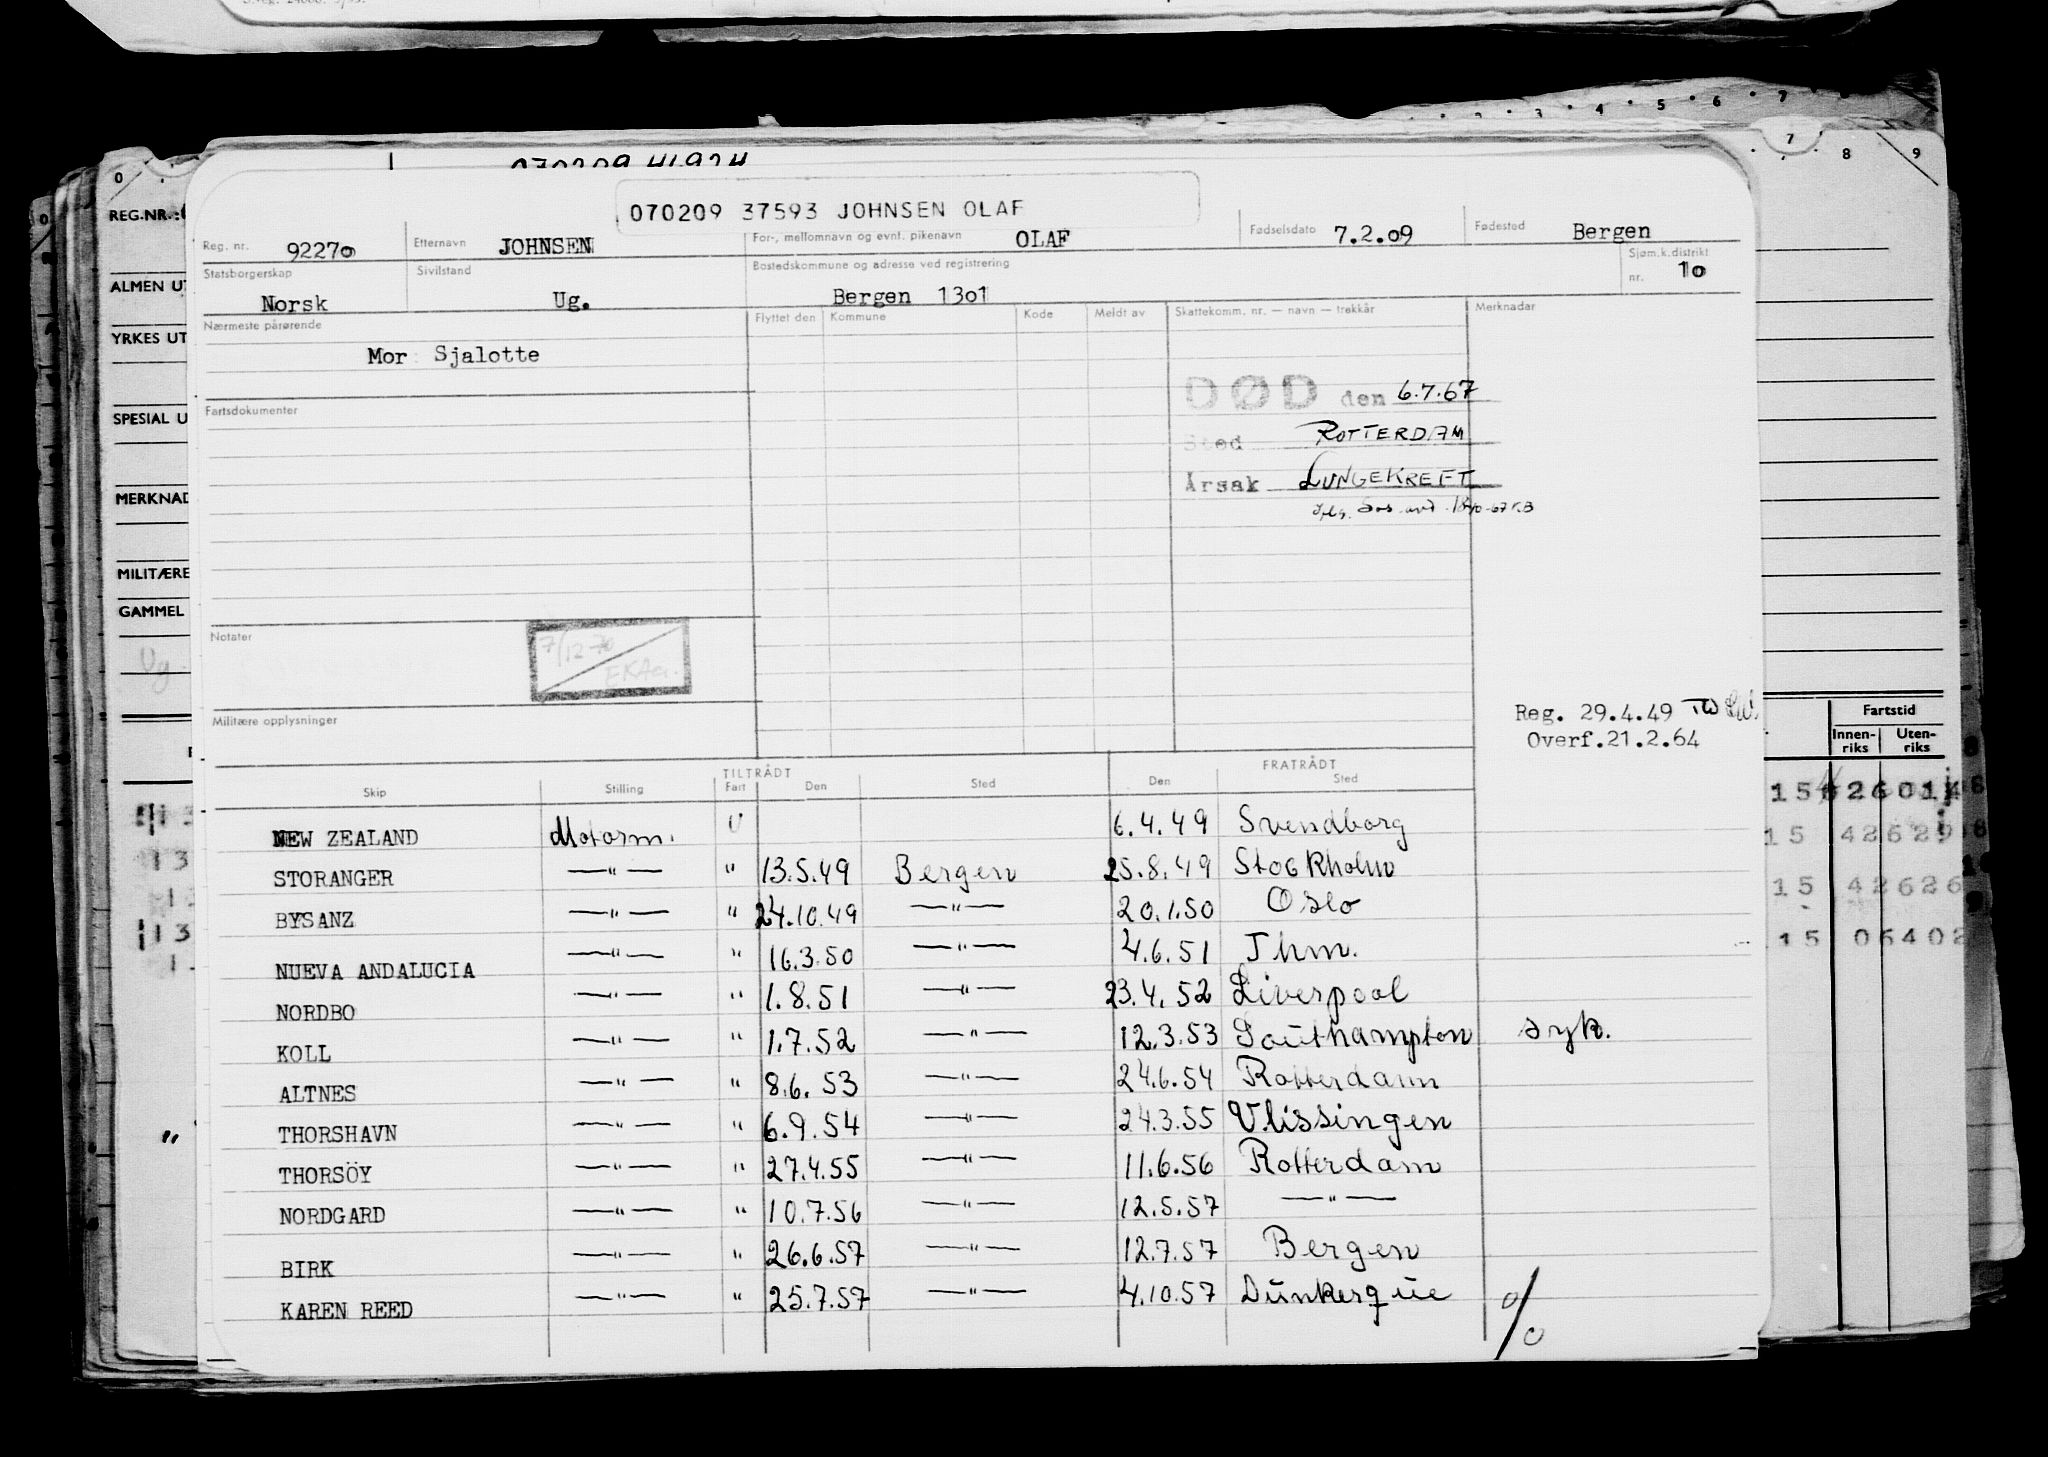 070209 41924
0 2 3 4 5 6 7 8 9
7
REG.NR.:
ALMEN UT
YRKES UT
SPESIAL U
MERKNAD
MILITÆRE
GAMMEL
Ug.
070209 37593 JOHNSEN OLAF
Reg. nr. 92270 Etternavn JOHNSEN For-, mellomnavn og evnt. pikenavn OLAF Fødselsdato 7.2.09 Fødested Bergen
Statsborgerskap Sivilstand Bostedskommune og adresse ved registrering Sjøm.k.distrikt
Norsk Ug. Bergen 13o1 nr. 1o
Nærmeste pårørende Flyttet den Kommune Kode Meldt av Skattekomm. nr. — navn — trekkår Merknader
Mor: Sjalotte
DØD den 6.7.67
Fartsdokumenter
Sted ROTTERDAM
Årsak LUNGEKREFT
Notater
7/12-70
EKAa.
Militære opplysninger
Reg. 29.4.49 TW
Overf.21.2.64
Fartstid
Innen-riks Uten-riks
TILTRÅDT FRATRÅDT
Skip Stilling Fart Den Sted Den Sted
NEW ZEALAND Motorm. U 6.4.49 Svendborg
STORANGER —"— " 13.5.49 Bergen 25.8.49 Stockholm
BYSANZ —"— " 24.10.49 —"— 20.1.50 Oslo
NUEVA ANDALUCIA —"— " 16.3.50 —"— 4.6.51 Thm.
NORDBO —"— " 1.8.51 —"— 23.4.52 Liverpool
KOLL —"— " 1.7.52 —"— 12.3.53 Southampton syk.
ALTNES —"— " 8.6.53 —"— 24.6.54 Rotterdam
THORSHAVN —"— " 6.9.54 —"— 24.3.55 Vlissingen
THORSÖY —"— " 27.4.55 —"— 11.6.56 Rotterdam
NORDGARD —"— " 10.7.56 —"— 12.5.57 —"—
BIRK —"— " 26.6.57 —"— 12.7.57 Bergen
KAREN REED —"— " 25.7.57 —"— 4.10.57 Dunkerque
15 42626
15 06402